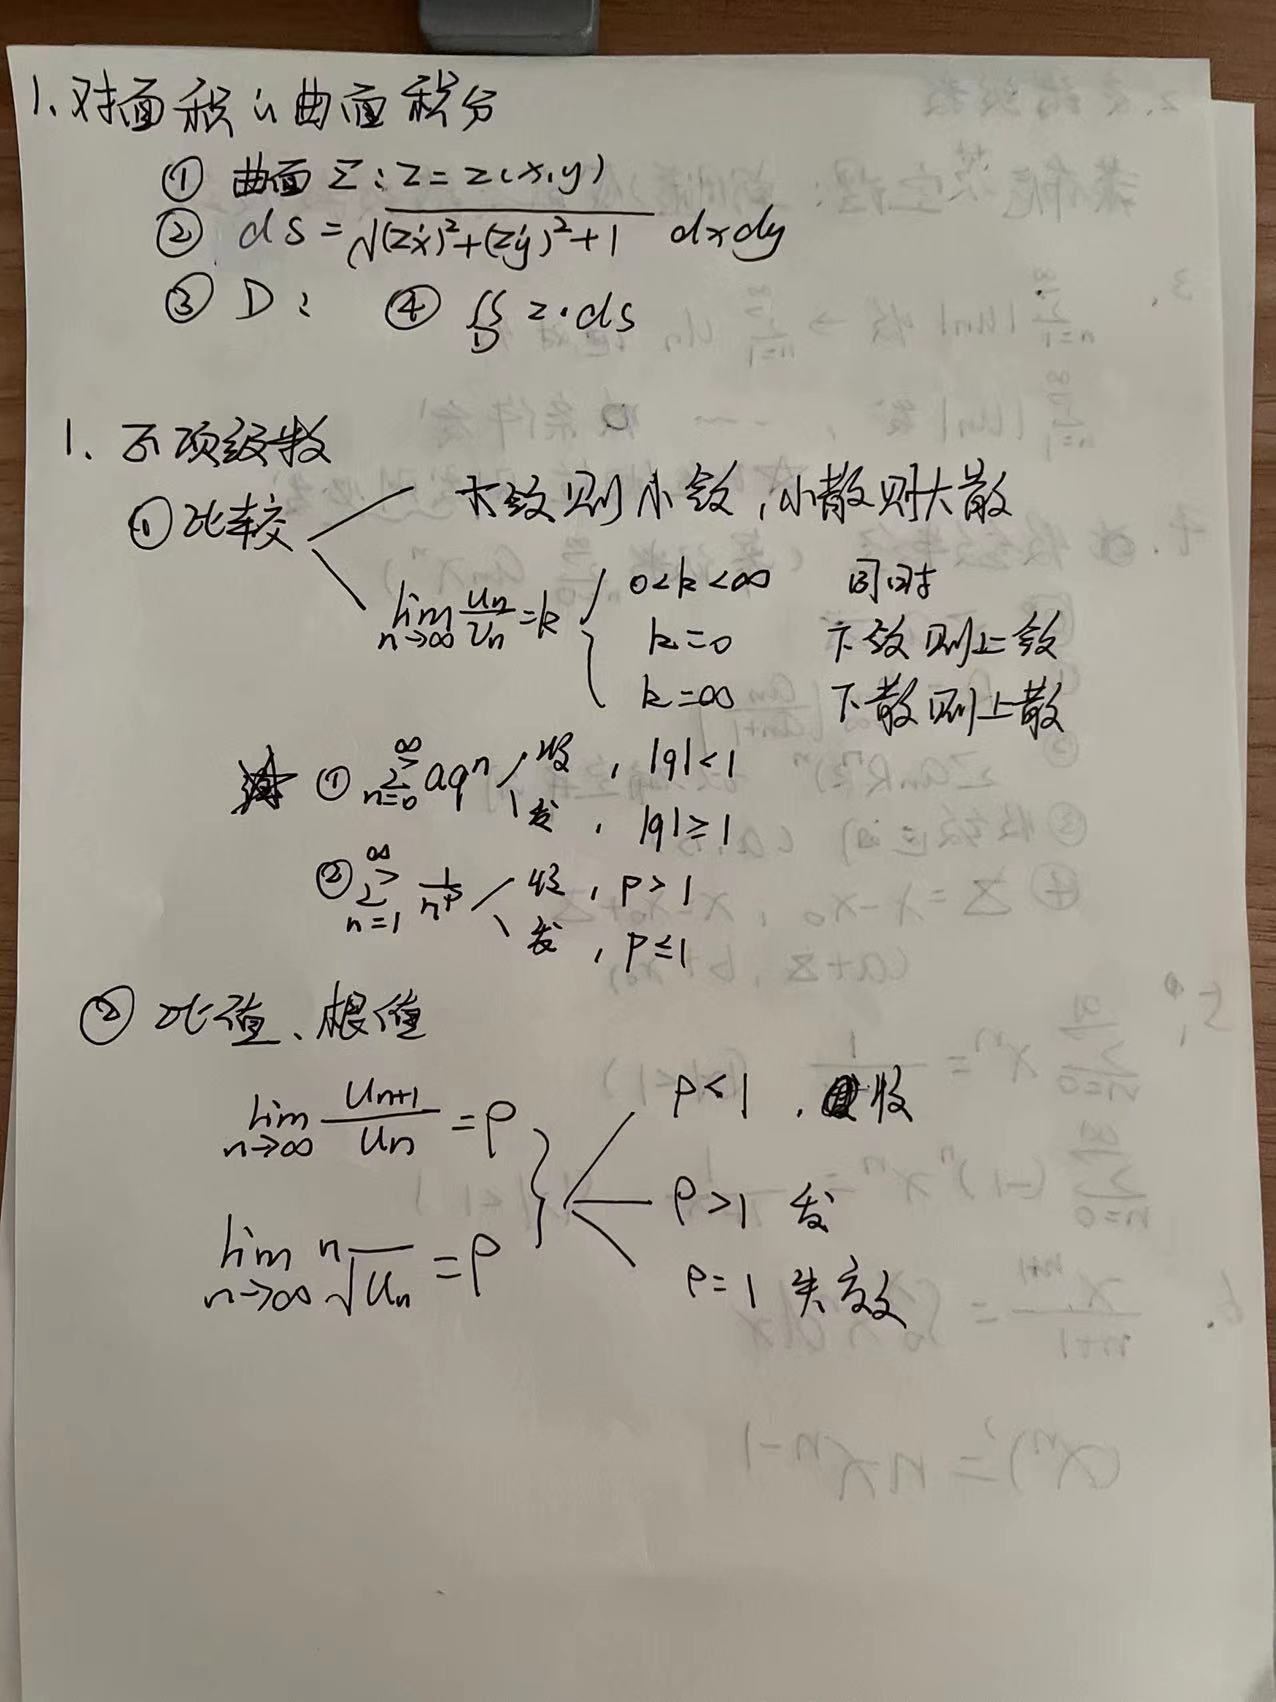 1. 对面积的曲面积分
① 曲面 Σ: z = z(x,y)
② dS = √((z'x)²+(z'y)²+1) dxdy
③ D: ④ ∬_D z·dS
1. 正项级数
① 比较 大敛则小敛,小散则大散
lim_{n→∞} un/vn = k { 0<k<∞ 同时
k=0 下敛则上敛
k=∞ 下散则上散
① ∑_{n=0}^{∞} aqⁿ 收, |q|<1
发, |q|≥1
② ∑_{n=1}^{∞} 1/n^p 收, p>1
发, p≤1
② 比值、根值
lim_{n→∞} u_{n+1}/u_n = ρ ρ<1, 收
ρ>1 发
lim_{n→∞} ⁿ√u_n = ρ ρ=1 失效